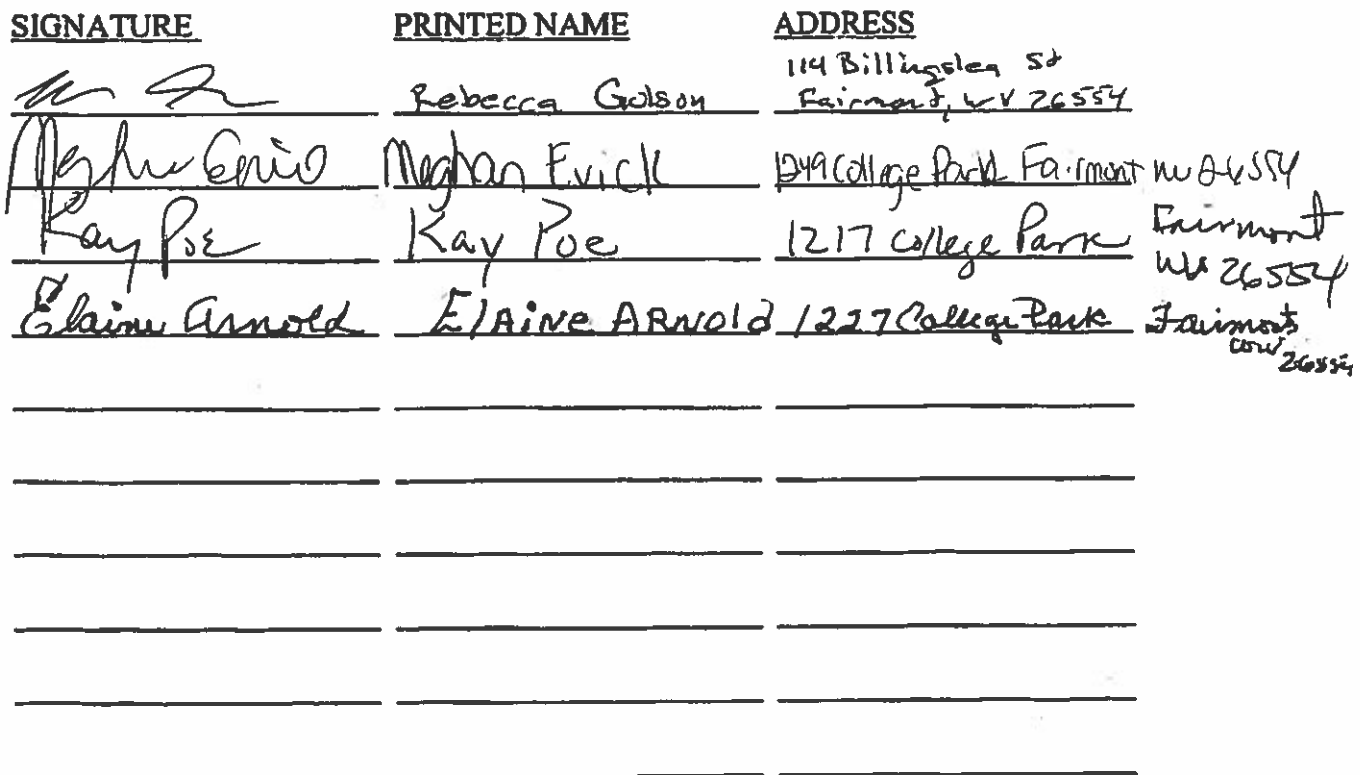 SIGNATURE PRINTED NAME ADDRESS
114 Billingslea St
Rebecca Golson Fairmont, WV 26554
Meghan Evick Meghan Evick 1249 College Park Fairmont WV 26554
Kay Poe Kay Poe 1217 College Park Fairmont
WV 26554
Elaine Arnold ElAiNe ARNold 1227 College Park Fairmont
26554